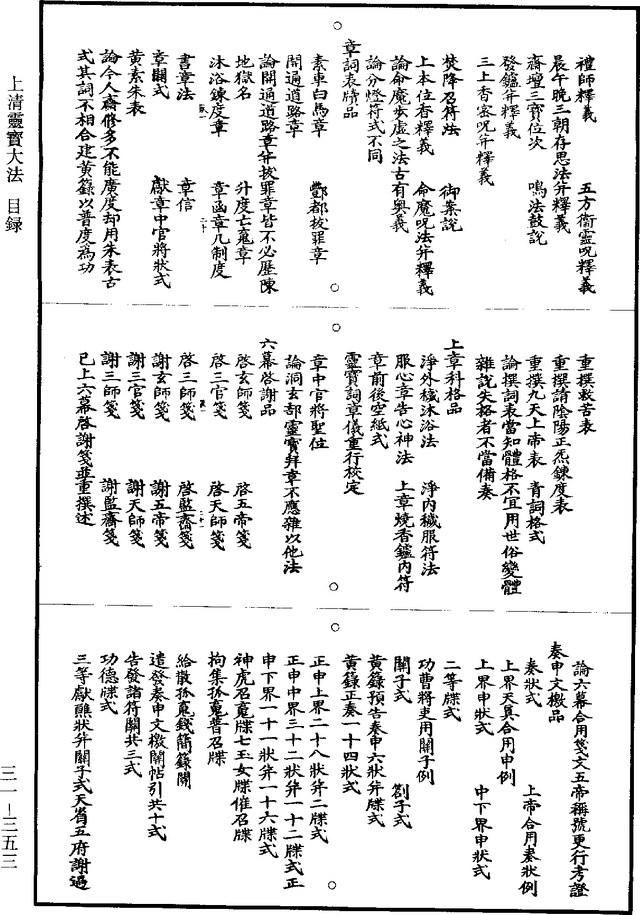 上清靈寶大法 目録
三一—三五三
禮師釋義 五方衞靈呪釋義
晨午晚三朝存思法并釋義
齋壇三寶位次 鳴法鼓説
發鑪并釋義
三上香密呪并釋義
焚降召符法 御案説
上本位香釋義 命魔呪法并釋義
論命魔步虚之法古有奥義
論分燈符式不同
章詞表牘品
素車白馬章 酆都拔罪章
開通道路章
論開通道路章并拔罪章皆不必歷陳
地獄名 升度亡䰟章
沐浴鍊度章 章函章几制度
書章法 章信
章關式 獻章中官將狀式
黄素朱表
論今人齋修多不能廣度却用朱表古
式其詞不相合建黄籙以普度爲功
重撰救苦表
重撰請陰陽正炁鍊度表
重撰九天上帝表 青詞格式
論撰詞表當知體格不宜用世俗變體
雜説失格者不當備奏
上章科格品
淨外穢沐浴法 淨内穢服符法
服心章告心神法 上章燒香鑪内符
章前後空紙式
靈寶詞章儀重行校定
章中官將聖位
論洞玄部靈寶拜章不應雜以他法
六幕啓謝品
啓玄師箋 啓五帝箋
啓三官箋 啓天師箋
啓三師箋 啓監齋箋
謝玄師箋 謝五帝箋
謝三官箋 謝天師箋
謝三師箋 謝監齋箋
已上六幕啓謝箋並重撰述
論六幕合用箋文五帝稱號更行考證
奏申文檄品
奏狀式 上帝合用奏狀例
上界天真合用申例
上界申狀式 中下界申狀式
二等牒式
功曹將吏用關子例
關子式 劄子式
黄籙預告奏申六狀并牒式
黄籙正奏一十四狀式
正申上界二十八狀并二牒式
正申中界三十二狀并一十二牒式正
申下界一十一狀并一十六牒式
神虎召䰟牒七玉女牒催召牒
拘集孤䰟普召牒
給散孤䰟錢簡籙關
遣發奏申文檄關帖引共十式
告發諸符關共三式
功德牒式
三等獻醮狀并關子式天省五府謝過